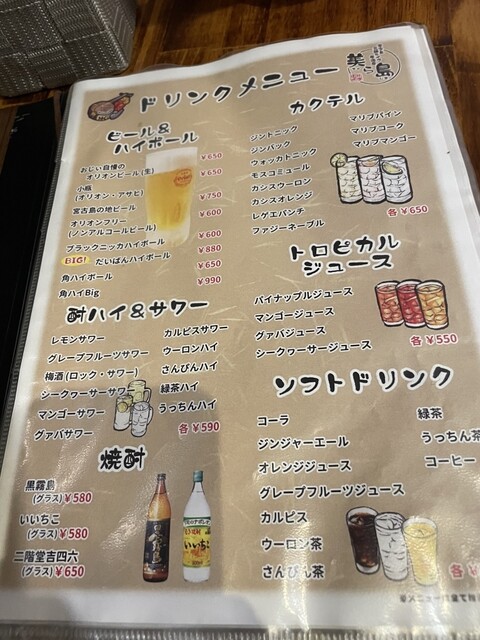 美ら島
ドリンクメニュー
ビール&
ハイボール
おじぃ自慢の
オリオンビール(生) ¥650
小瓶
(オリオン・アサヒ) ¥650
宮古島の地ビール ¥750
オリオンフリー
(ノンアルコールビール) ¥600
ブラックニッカハイボール ¥600
BIG! だいばんハイボール ¥880
角ハイボール ¥650
角ハイBig ¥990
酎ハイ&サワー
レモンサワー
グレープフルーツサワー
梅酒(ロック・サワー)
シークヮーサーサワー
マンゴーサワー
グァバサワー
カルピスサワー
ウーロンハイ
さんぴんハイ
緑茶ハイ
うっちんハイ
各¥590
焼酎
黒霧島
(グラス)¥580
いいちこ
(グラス)¥580
二階堂吉四六
(グラス)¥650
いいちこ
カクテル
ジントニック
ジンバック
ウォッカトニック
モスコミュール
カシスウーロン
カシスオレンジ
レゲエパンチ
ファジーネーブル
マリブパイン
マリブコーク
マリブマンゴー
各¥650
トロピカル
ジュース
パイナップルジュース
マンゴージュース
グァバジュース
シークヮーサージュース
各¥550
ソフトドリンク
コーラ
ジンジャーエール
オレンジジュース
グレープフルーツジュース
カルピス
ウーロン茶
さんぴん茶
緑茶
うっちん茶
コーヒー
各